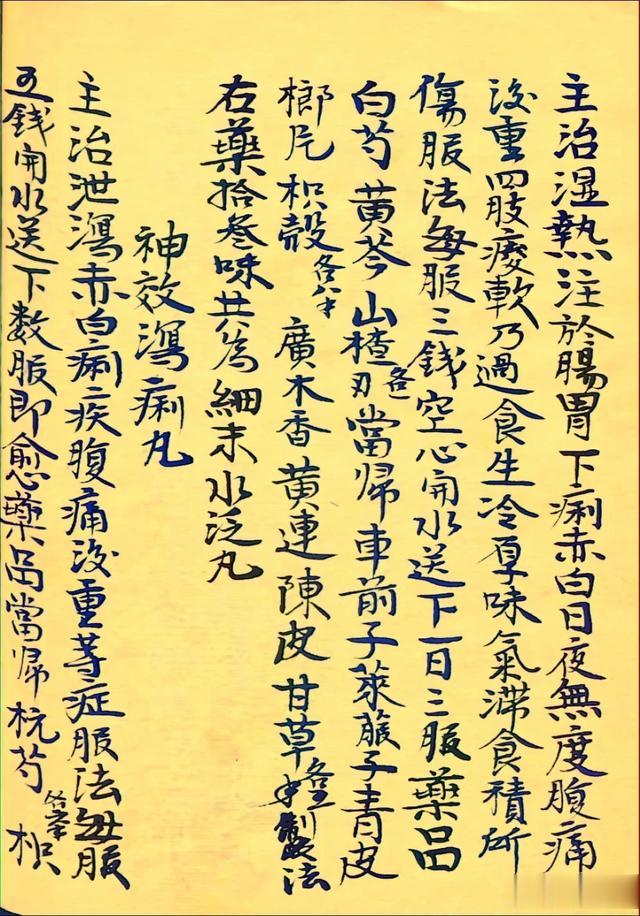 主治濕熱注於腸胃下痢赤白日夜無度腹痛
後重四肢痠軟乃過食生冷厚味氣滞食積所
傷服法每服三錢空心開水送下一日三服藥品
白芍黄芩山楂各一刃當帰車前子萊菔子青皮
榔片枳殼各八才廣木香黄連陳皮甘草製法
右藥拾叁味共為細末水泛丸
神效瀉痢丸
主治泄瀉赤白痢疾腹痛後重等症服法每服
五錢開水送下数服即愈藥品當帰杭芍枳